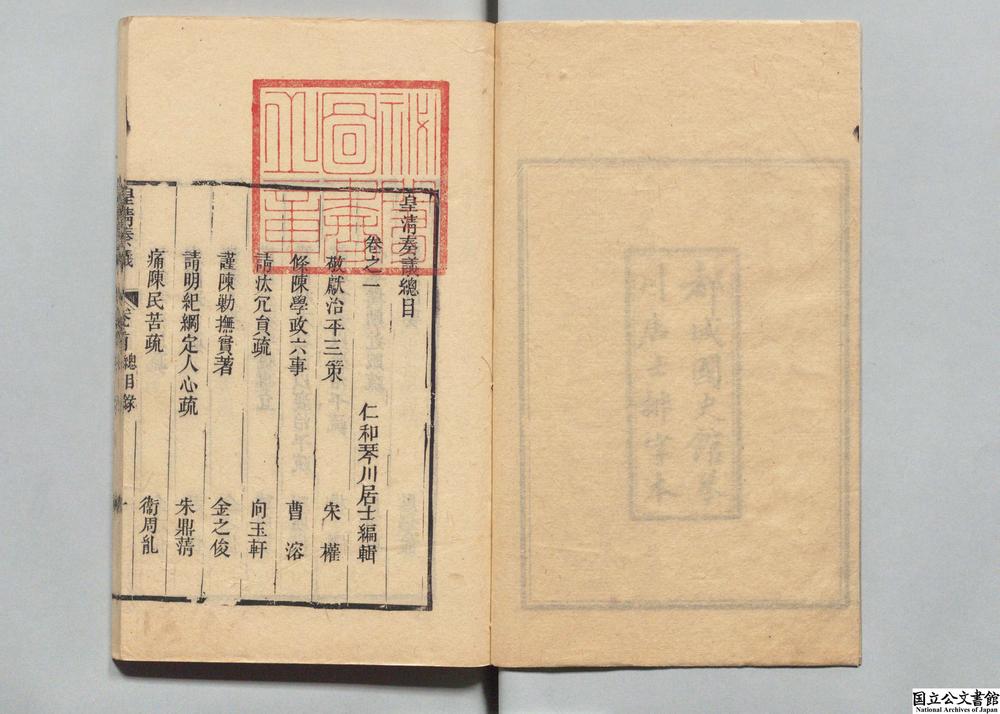 都城國史館琴
川居士排字本
秘閣圖書之章
皇清奏議總目
仁和琴川居士編輯
卷之一
敬獻治平三策 宋權
條陳學政六事 曹溶
請汰冗員疏 向玉軒
謹陳勦撫實著 金之俊
請明紀綱定人心疏 朱鼎藩
痛陳民苦疏 衞周胤
皇清奏議 卷首總目錄 一
国立公文書館
National Archives of Japan